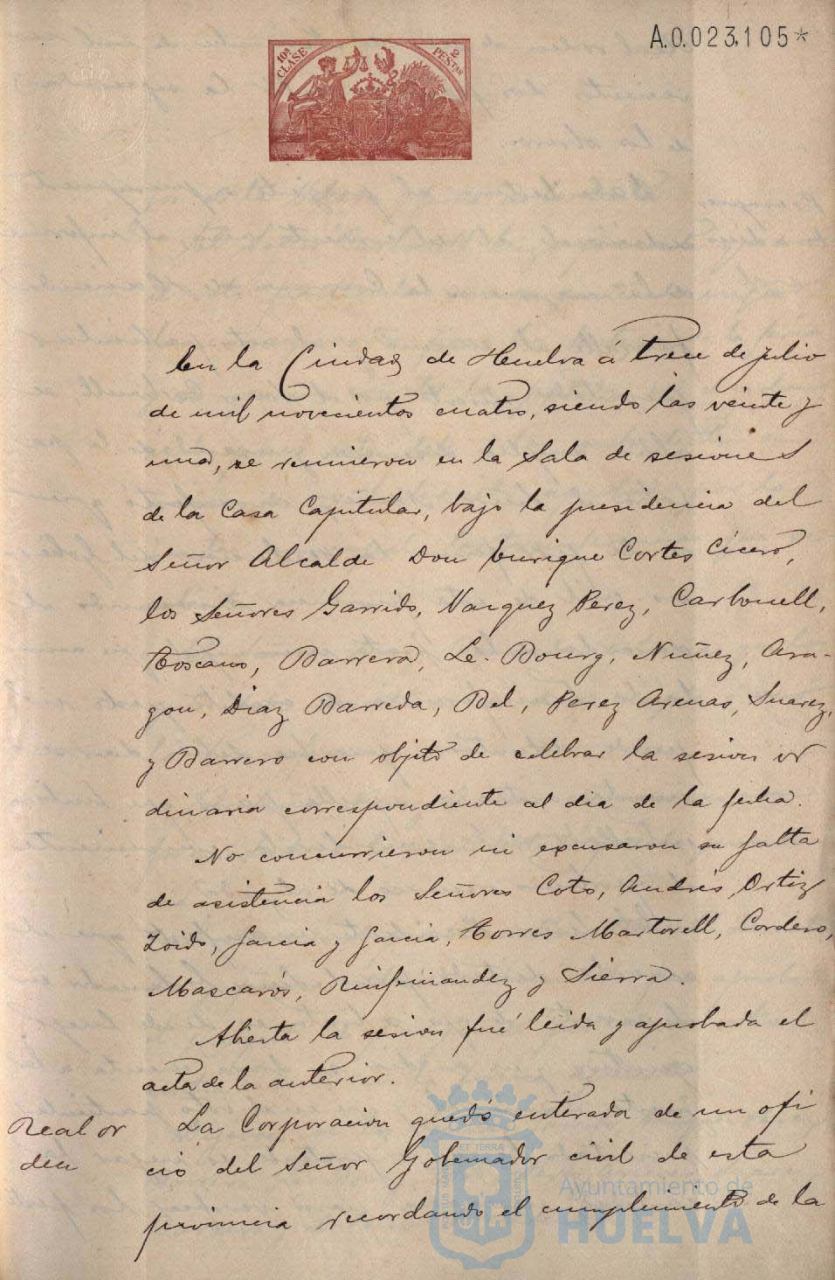 A.0.023,105*
10ª CLASE
2 PESTAS
En la Ciudad de Huelva á trece de julio
de mil novecientos cuatro, siendo las veinte y
una, se reunieron en la Sala de sesiones
de la Casa Capitular, bajo la presidencia del
Señor Alcalde Don Enrique Cortes Cícero,
los Señores Garrido, Vazquez Perez, Carbonell,
Toscano, Barrera, Le-Bourg, Nuñez, Ara-
gon, Diaz Barreda, Bel, Perez Arenas, Suarez,
y Barrero con objeto de celebrar la sesion or
dinaria correspondiente al dia de la fecha.
No concurrieron ni excusaron su falta
de asistencia los Señores Coto, Andrés Ortiz
Zoido, Garcia y Garcia, Torres Martorell, Cordero,
Mascarós, Ruifernandez y Sierra.
Abierta la sesion fué leida y aprobada el
acta de la anterior.
Real or
den
La Corporacion quedó enterada de un ofi
cio del Señor Gobernador civil de esta
provincia recordando el cumplimento de la
Ayuntamiento de
HUELVA